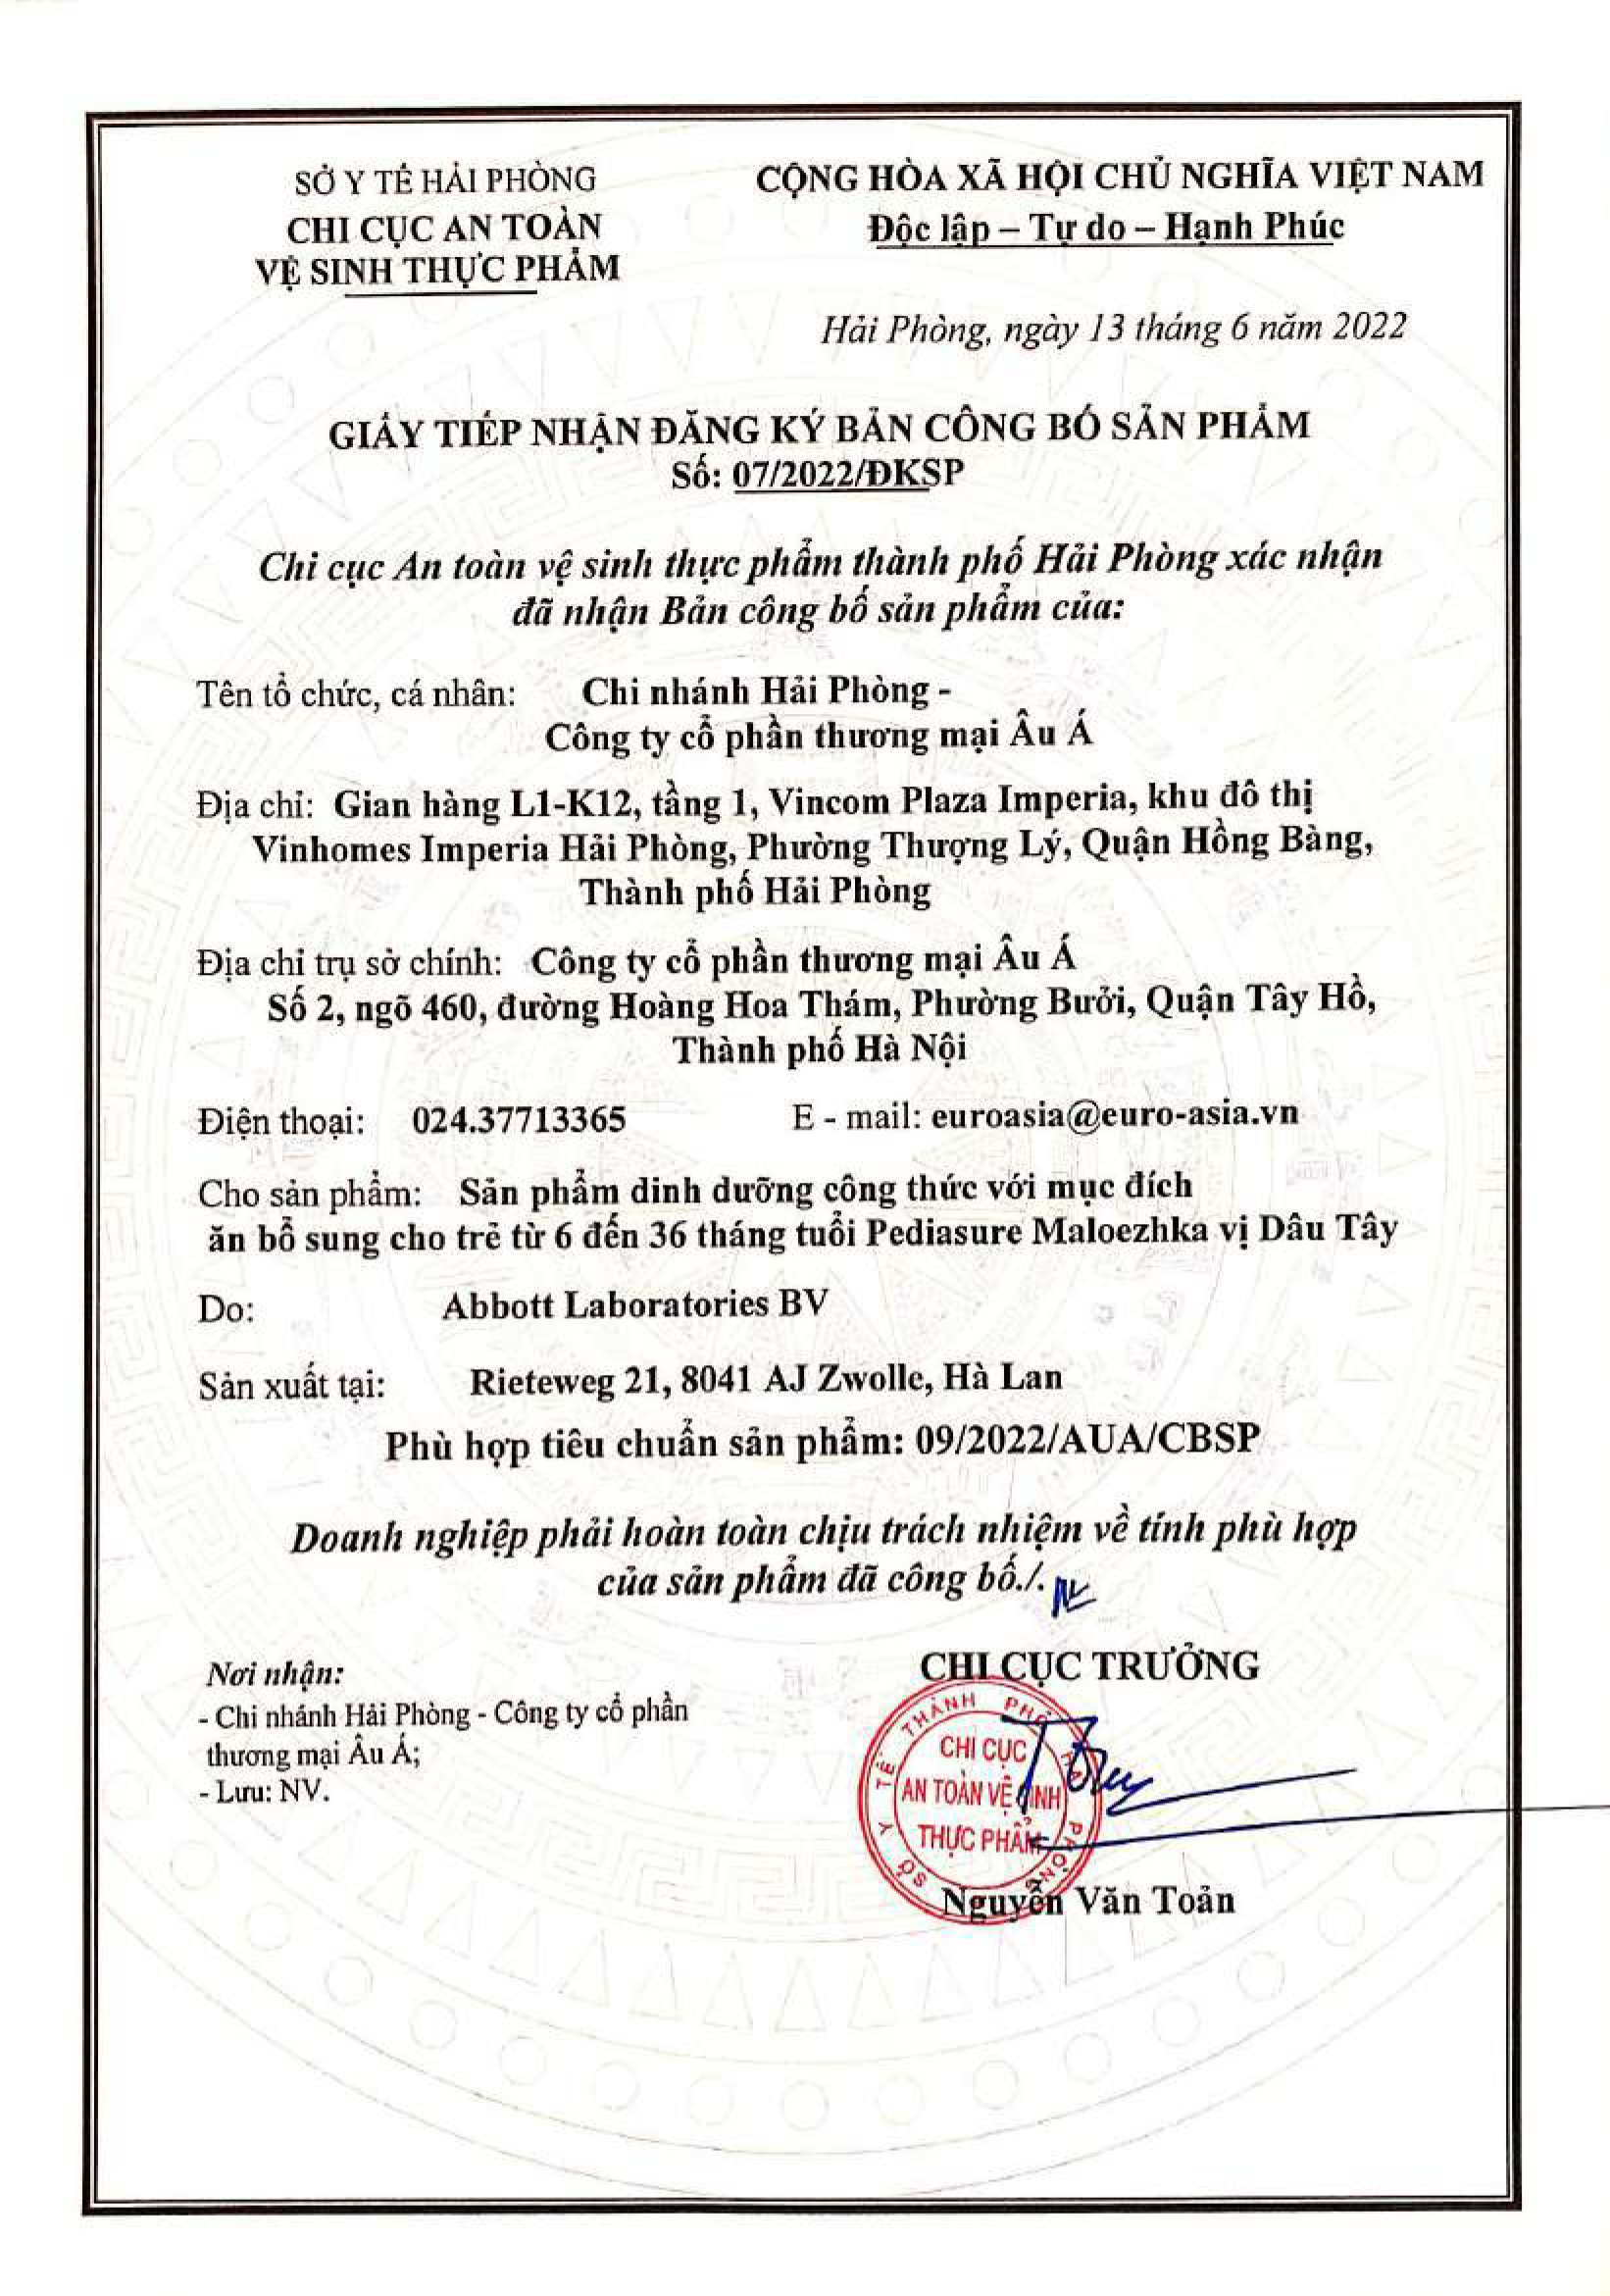 SỞ Y TẾ HẢI PHÒNG
CHI CỤC AN TOÀN
VỆ SINH THỰC PHẨM
CỘNG HÒA XÃ HỘI CHỦ NGHĨA VIỆT NAM
Độc lập – Tự do – Hạnh Phúc
Hải Phòng, ngày 13 tháng 6 năm 2022
GIẤY TIẾP NHẬN ĐĂNG KÝ BẢN CÔNG BỐ SẢN PHẨM
Số: 07/2022/ĐKSP
Chi cục An toàn vệ sinh thực phẩm thành phố Hải Phòng xác nhận
đã nhận Bản công bố sản phẩm của:
Tên tổ chức, cá nhân: Chi nhánh Hải Phòng -
Công ty cổ phần thương mại Âu Á
Địa chỉ: Gian hàng L1-K12, tầng 1, Vincom Plaza Imperia, khu đô thị
Vinhomes Imperia Hải Phòng, Phường Thượng Lý, Quận Hồng Bàng,
Thành phố Hải Phòng
Địa chỉ trụ sở chính: Công ty cổ phần thương mại Âu Á
Số 2, ngõ 460, đường Hoàng Hoa Thám, Phường Bưởi, Quận Tây Hồ,
Thành phố Hà Nội
Điện thoại: 024.37713365 E - mail: euroasia@euro-asia.vn
Cho sản phẩm: Sản phẩm dinh dưỡng công thức với mục đích
ăn bổ sung cho trẻ từ 6 đến 36 tháng tuổi Pediasure Maloezhka vị Dâu Tây
Do: Abbott Laboratories BV
Sản xuất tại: Rieteweg 21, 8041 AJ Zwolle, Hà Lan
Phù hợp tiêu chuẩn sản phẩm: 09/2022/AUA/CBSP
Doanh nghiệp phải hoàn toàn chịu trách nhiệm về tính phù hợp
của sản phẩm đã công bố./.
Nơi nhận:
- Chi nhánh Hải Phòng - Công ty cổ phần
thương mại Âu Á;
- Lưu: NV.
CHI CỤC TRƯỞNG
SỞ Y TẾ THÀNH PHỐ HẢI PHÒNG
CHI CỤC
AN TOÀN VỆ SINH
THỰC PHẨM
Nguyễn Văn Toản